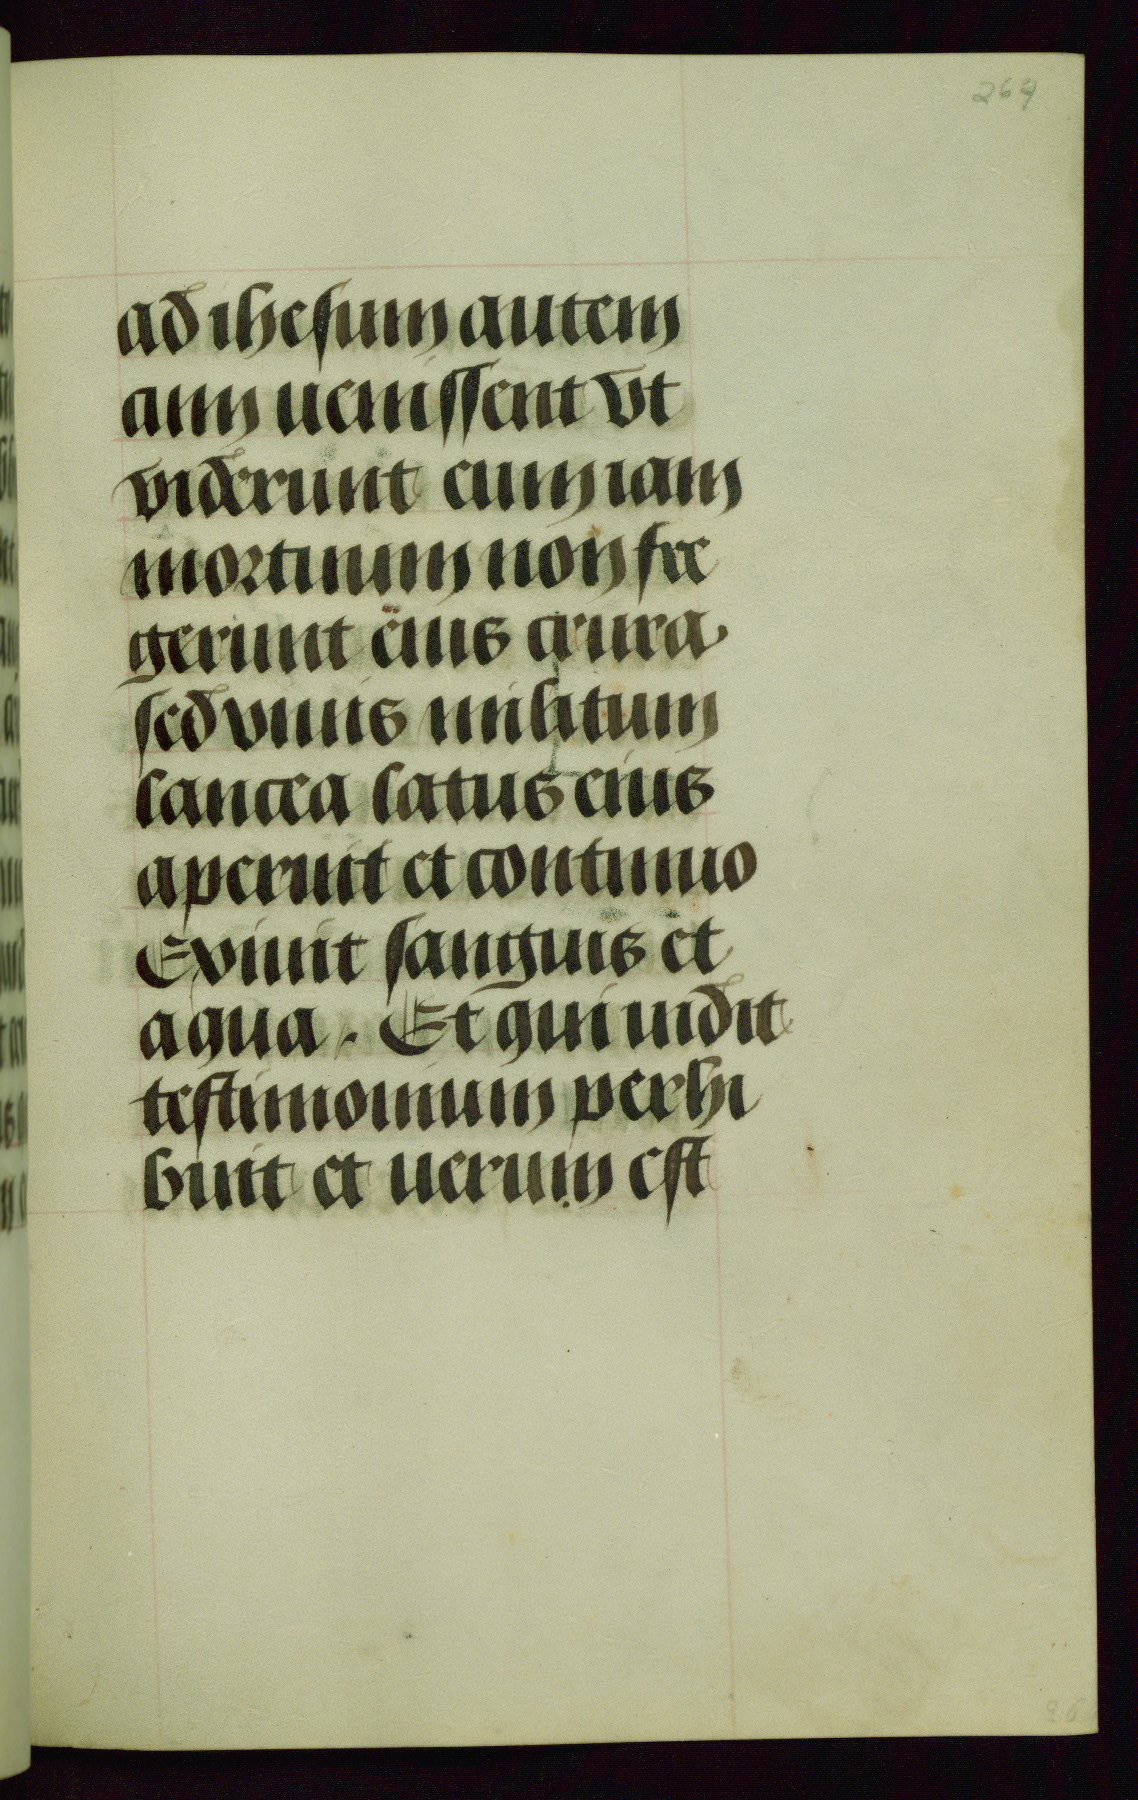 269
ad ihesum autem
cum uenissent vt
viderunt eum iam
mortuum non fre
gerunt eius crura
sed vnus militum
lancea latus eius
aperuit et continuo
Exiuit sanguis et
aqua. Et qui uidit
testimonium perhi
buit et uerum est